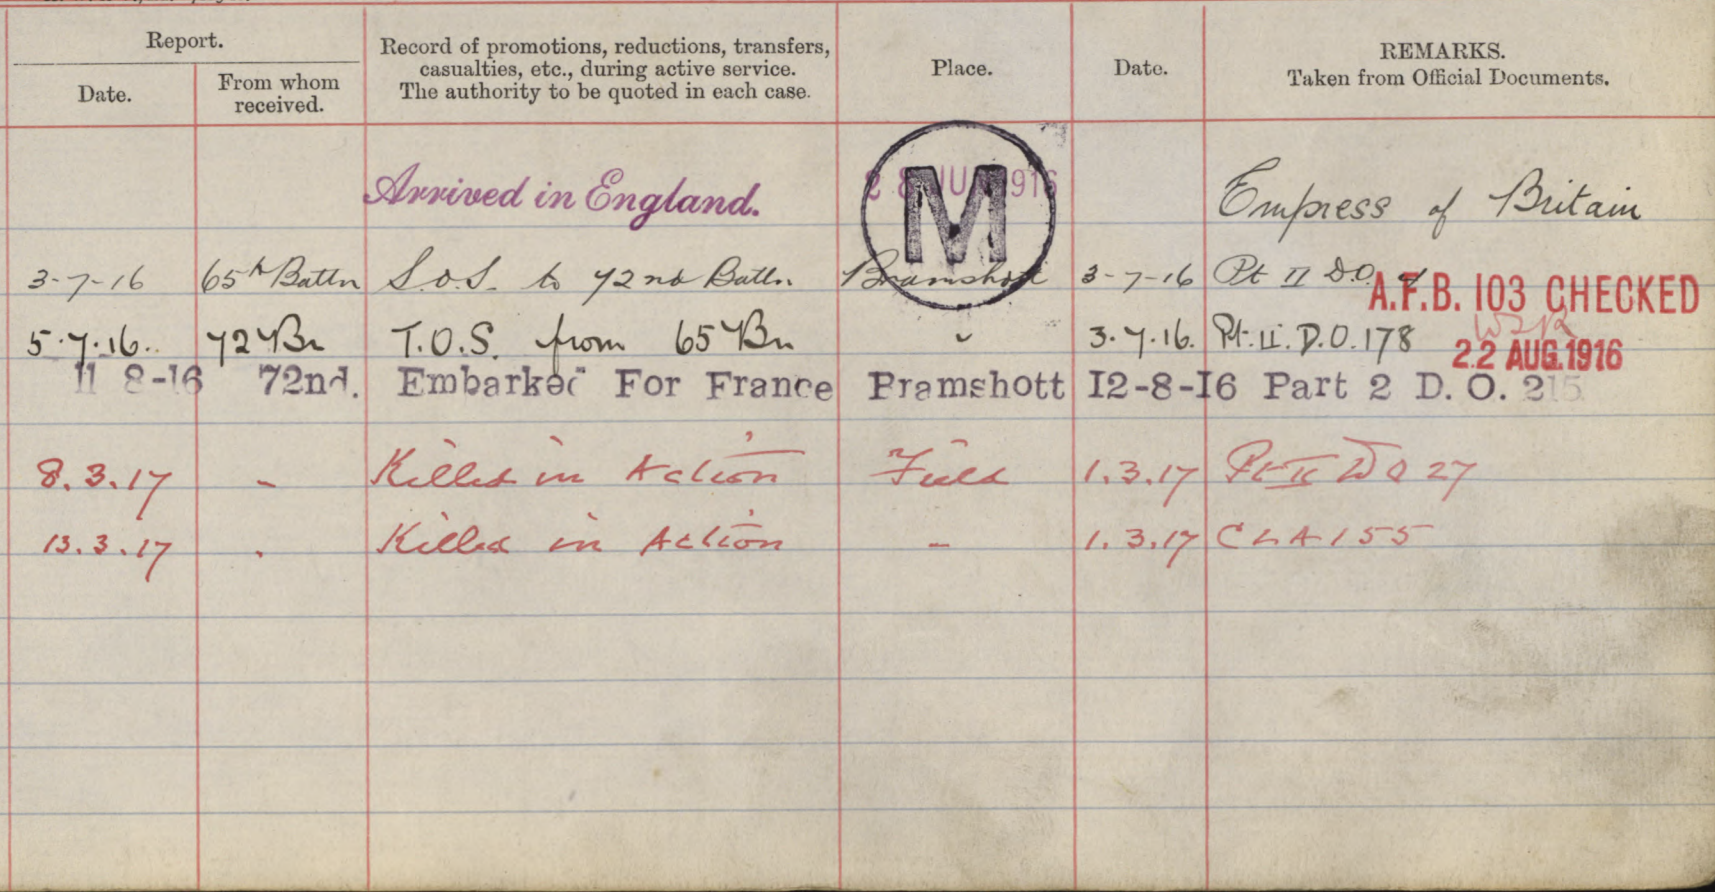 Report.
Date.
From whom
received.
Record of promotions, reductions, transfers,
casualties, etc., during active service.
The authority to be quoted in each case.
Place.
Date.
REMARKS.
Taken from Official Documents.
Arrived in England. M 1916 Empress of Britain
3-7-16 65th Battn S.O.S. to 72nd Battn. Bramshott 3-7-16 Pt II D.O.
A.F.B. 103 CHECKED
5.7.16. 72 Bn T.O.S. from 65 Bn " 3.7.16. Pt. II. D.O. 178
22 AUG. 1916
11 8-16 72nd. Embarked For France Bramshott 12-8-16 Part 2 D. O. 215
8.3.17 - Killed in Action Field 1.3.17 Pt II D O 27
13.3.17 Killed in Action - 1.3.17 C L A 155